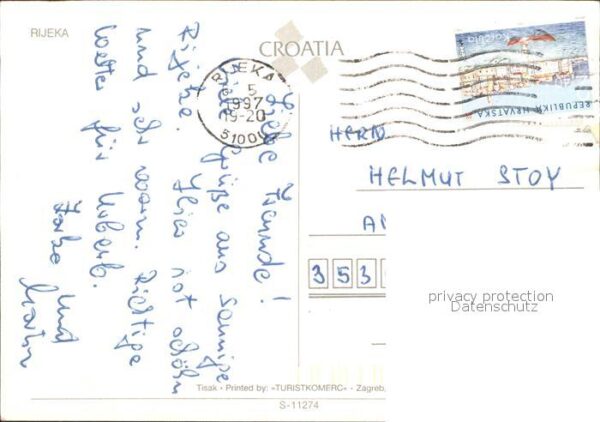 RIJEKA
CROATIA
RIJEKA
5
1997
19-20
51000
REPUBLIKA HRVATSKA
Liebe Freunde!
Viele Grüße aus
Rijeka. Hier ist schön
und sehr warm. Richtige
Wetter für Urlaub.
und
Martin
HERRN
HELMUT STOY
353
privacy protection
Datenschutz
Tisak • Printed by: »TURISTKOMERC« • Zagreb,
S-11274